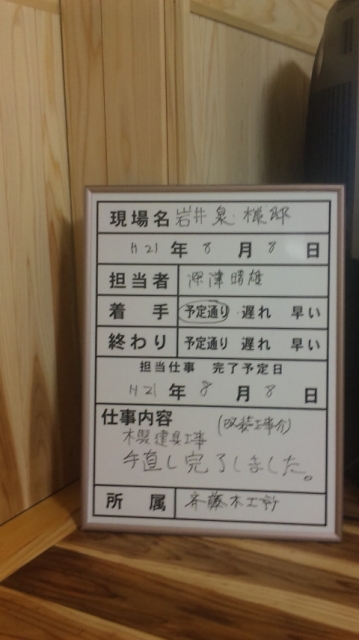 現場名 岩井泉 様邸
H21 年 8 月 8 日
担当者 深津晴雄
着手 予定通り 遅れ 早い
終わり 予定通り 遅れ 早い
担当仕事 完了予定日
H21 年 8 月 8 日
仕事内容 (改装工事分)
木製建具工事
手直し完了しました。
所属 斉藤木工所